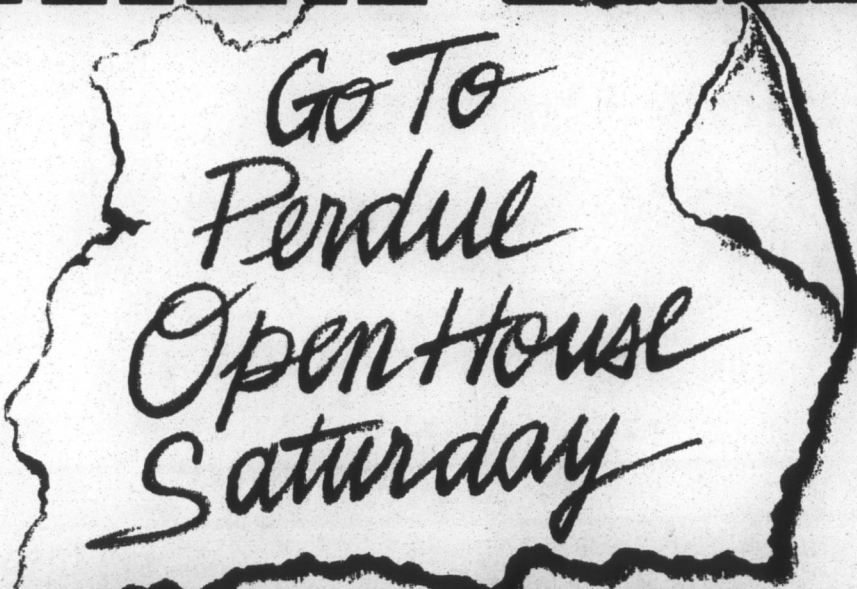 Go To
Perdue
Open House
Saturday